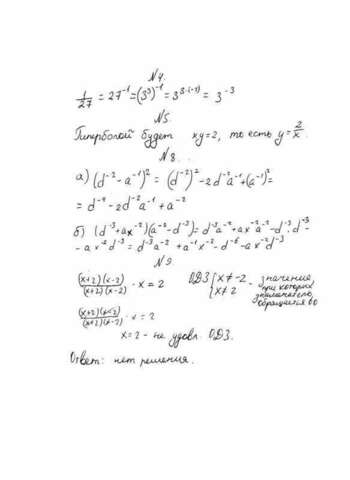 №4.
1/27 = 27⁻¹ = (3³)⁻¹ = 3³·⁽⁻¹⁾ = 3⁻³
№5.
Гиперболой будет xy=2, то есть y=2/x.
№8.
а) (d⁻² - a⁻¹)² = (d⁻²)² - 2d⁻²a⁻¹ + (a⁻¹)² =
= d⁻⁴ - 2d⁻²a⁻¹ + a⁻²
б) (d⁻³ + ax⁻²)(a⁻² - d⁻³) = d⁻³a⁻² + ax⁻²a⁻² - d⁻³·d⁻³
- ax⁻²d⁻³ = d⁻³a⁻² + a⁻¹x⁻² - d⁻⁶ - ax⁻²d⁻³
№9.
(x+2)(x-2)/(x+2)(x-2) · x = 2 ОДЗ { x≠-2 x≠2 - значение, при которых знаменатель обращается в 0
(x+2)(x-2)/(x+2)(x-2) · x = 2
x=2 - не удовл. ОДЗ.
Ответ: нет решения.